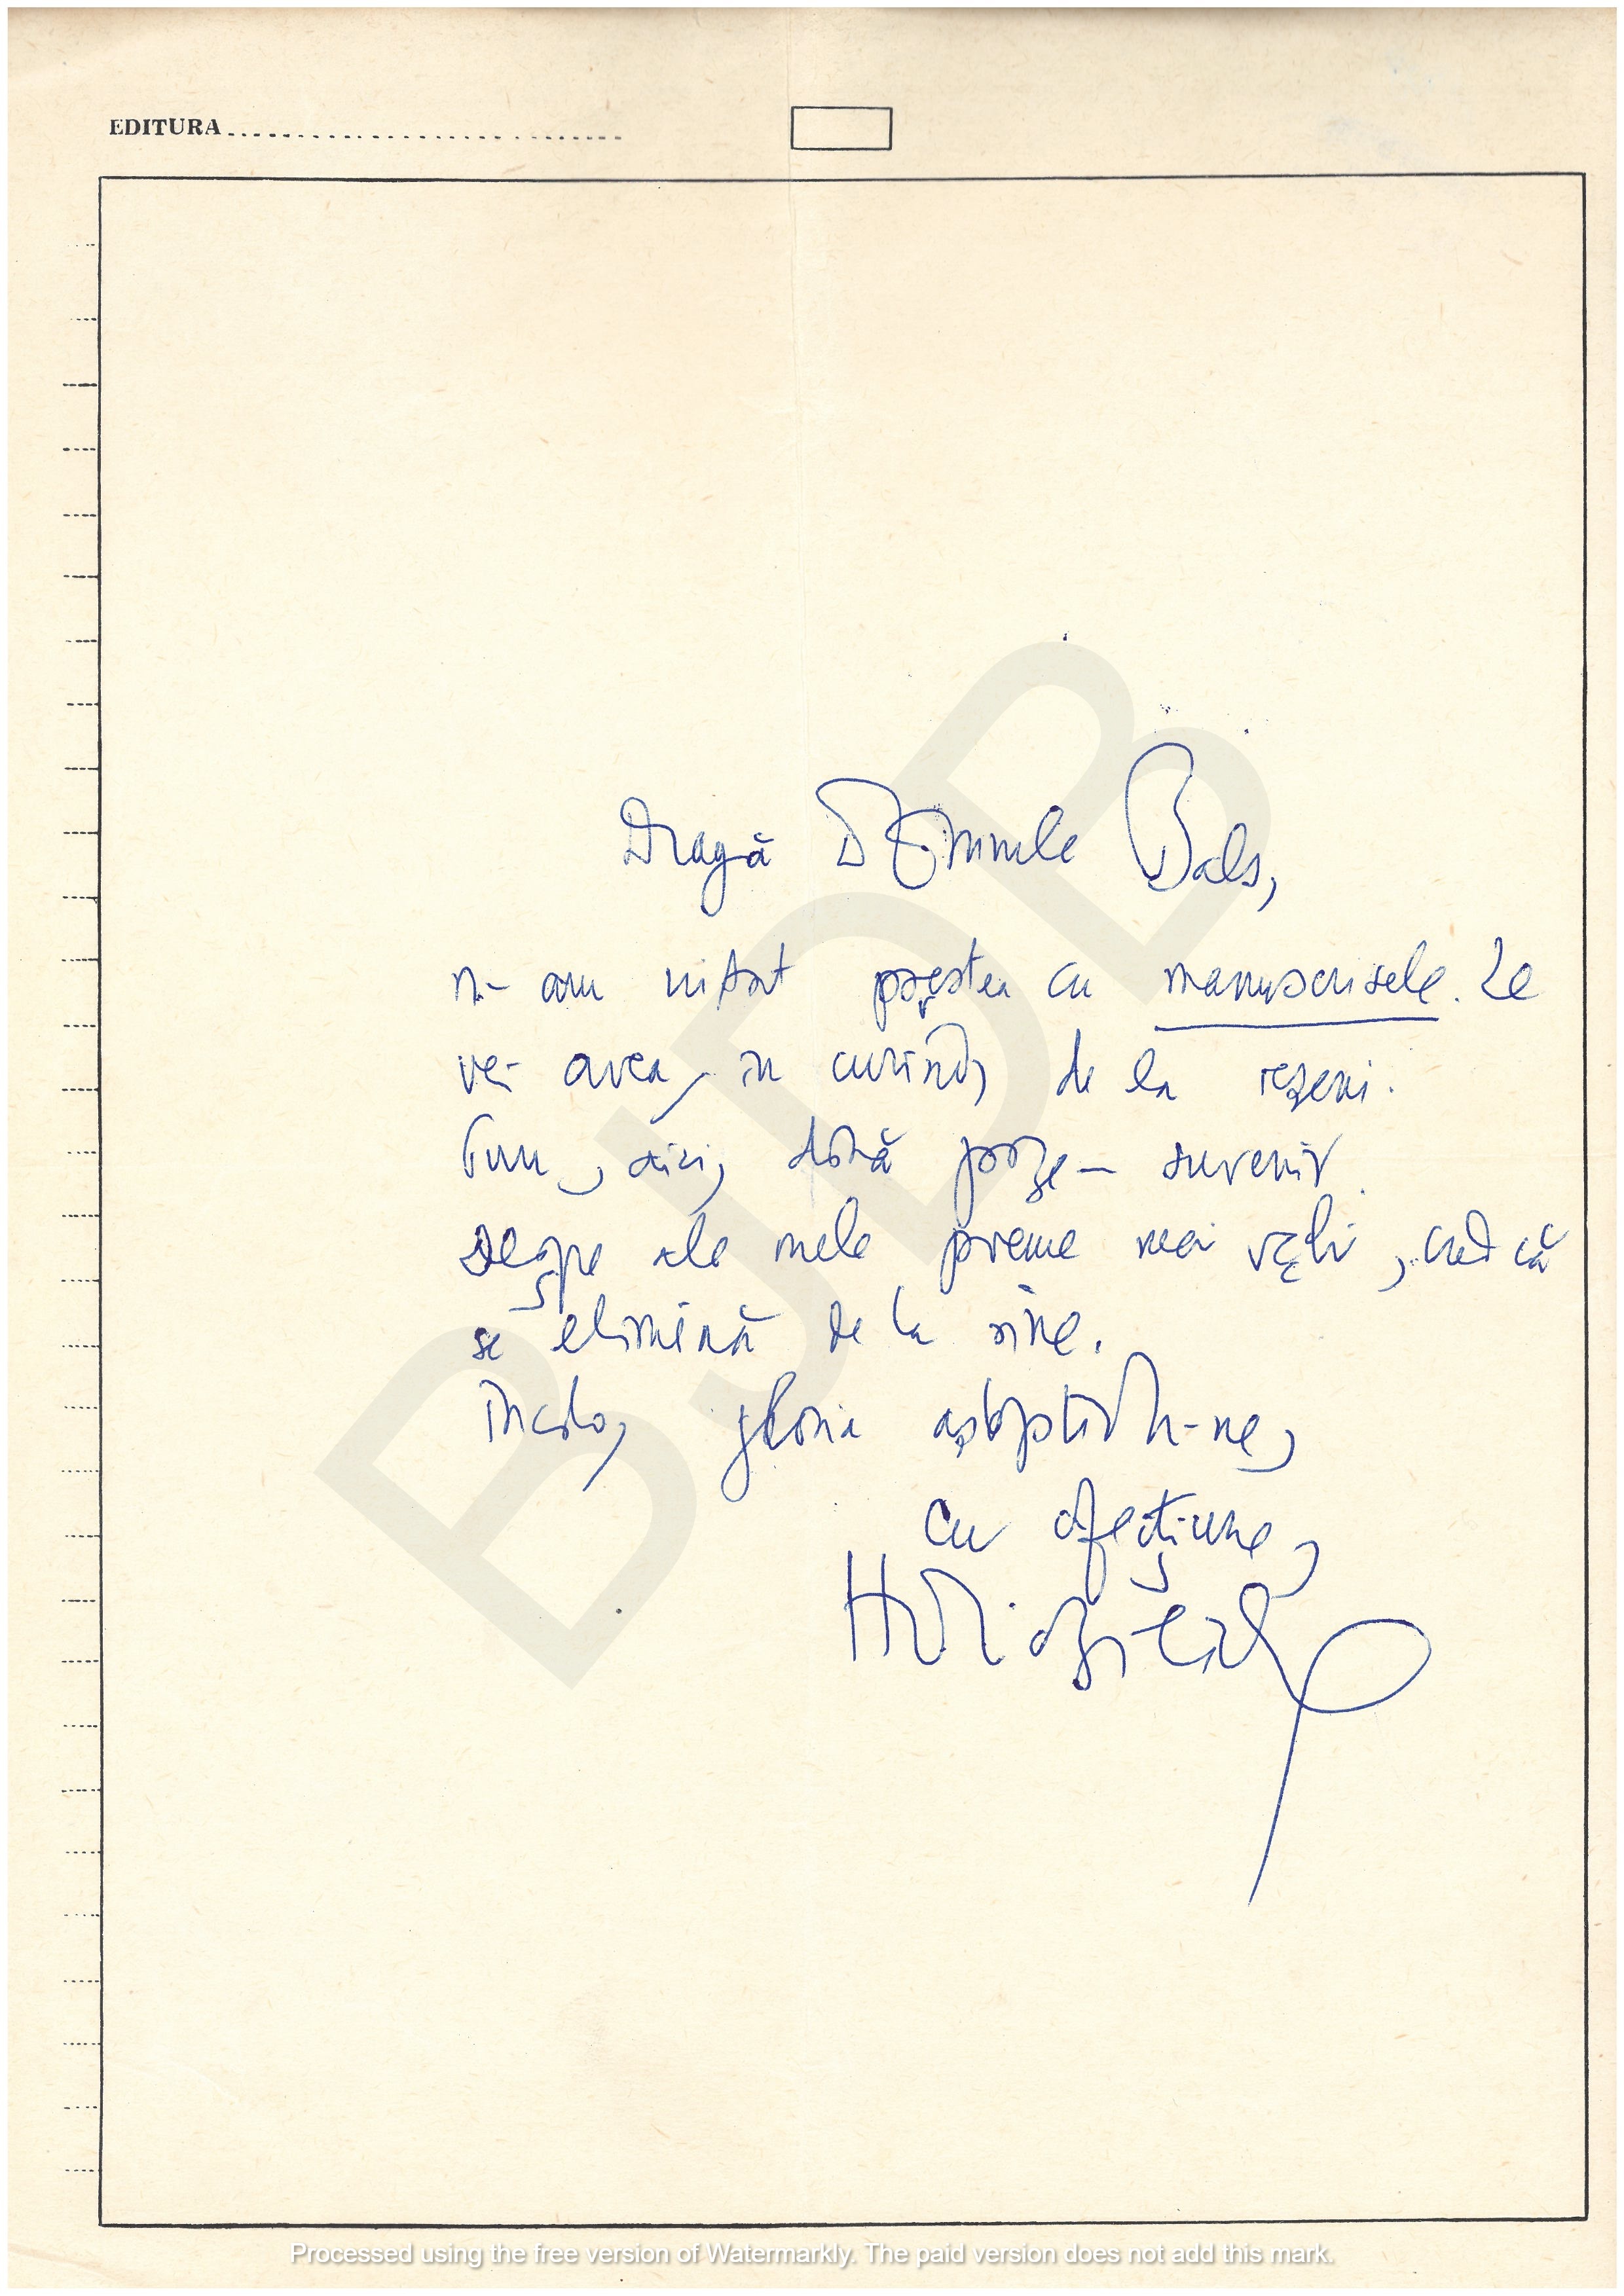 EDITURA
Dragă Domnule Bals,
n-am uitat povestea cu manuscrisele. Le
vei avea, în curînd, de la ieșeni.
Pun, aici, două poze-suvenir.
Despre ale mele poeme mai vechi, cred că
se elimină de la sine.
Încolo, gloria așteptînd-ne,
cu afecțiune,
Hori
BJDB
Processed using the free version of Watermarkly. The paid version does not add this mark.